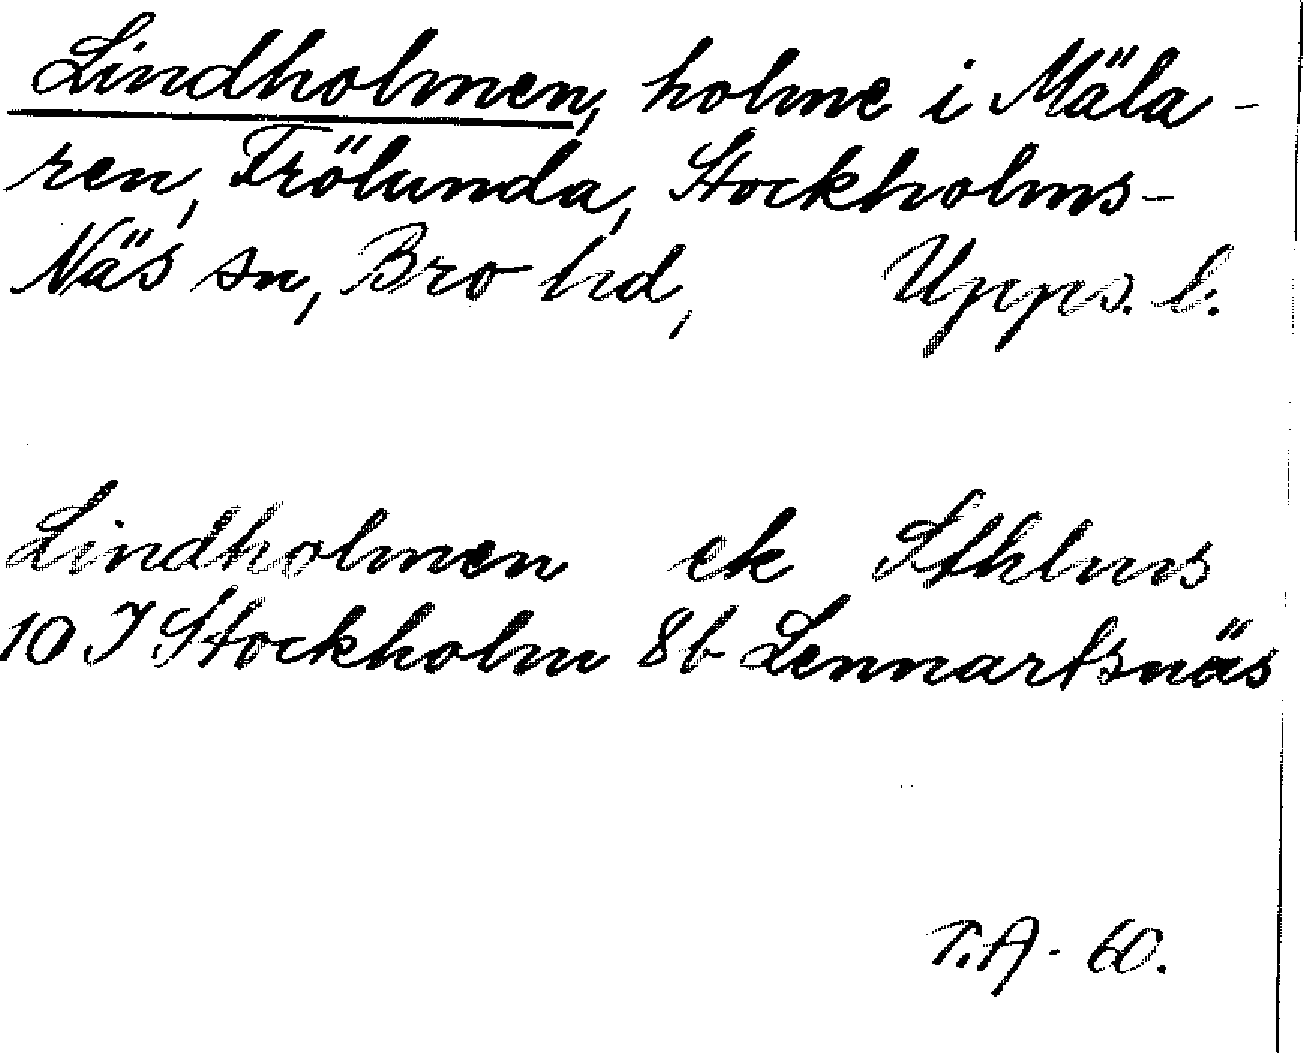 Lindholmen, holme i Mäla-
ren, Frölunda, Stockholms-
Näs sn, Bro hd, Upps. l.
Lindholmen ek Sthlms
10 I Stockholm 8b Lennartsnäs
T.A - 60.